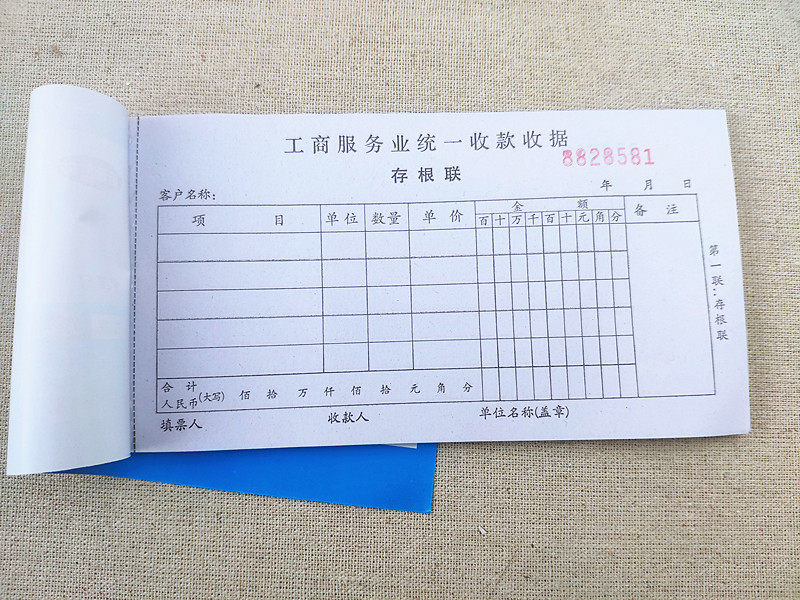 工商服务业统一收款收据
8828581
存根联
年 月 日
客户名称：
项 目 单位 数量 单价 金 额 备 注
百 十 万 千 百 十 元 角 分
第一联：存根联
合 计
人民币(大写) 佰 拾 万 仟 佰 拾 元 角 分
填票人 收款人 单位名称(盖章)